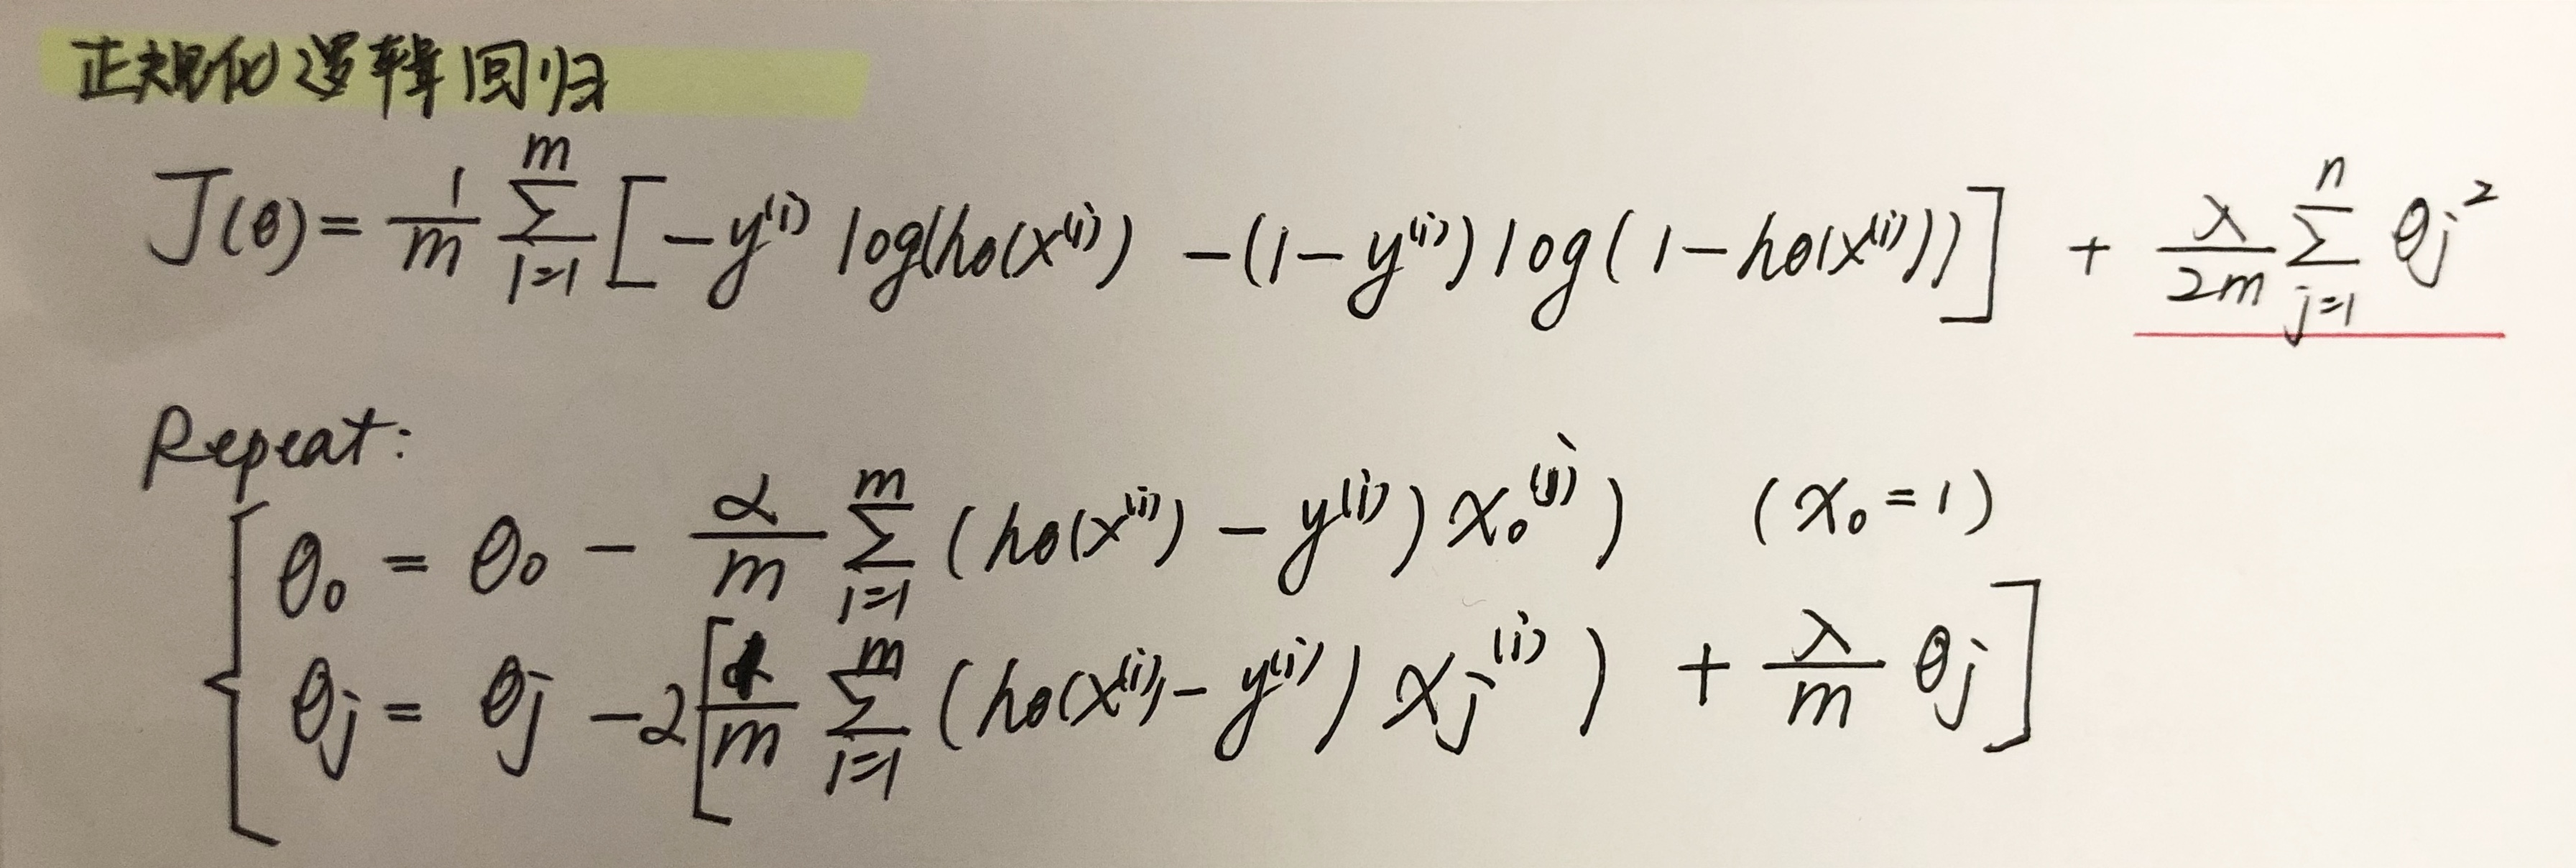 正规化逻辑回归
J(θ) = 1/m Σ_{i=1}^{m} [ -y^{(i)} log(hθ(x^{(i)}) - (1-y^{(i)}) log(1-hθ(x^{(i)})) ] + λ/2m Σ_{j=1}^{n} θj²
Repeat:
θ₀ = θ₀ - α/m Σ_{i=1}^{m} (hθ(x^{(i)}) - y^{(i)}) x₀^{(i)}) (x₀ = 1)
θj = θj - α [ 1/m Σ_{i=1}^{m} (hθ(x^{(i)}) - y^{(i)}) xj^{(i)}) + λ/m θj ]